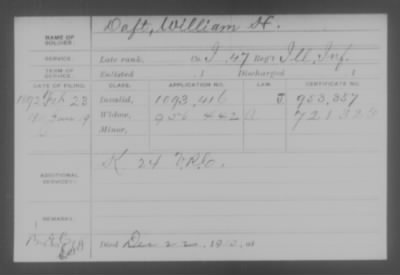 NAME OF SOLDIER: Daft, William H.
SERVICE: Late rank, Co. I, 47 Reg't Ill. Inf.
TERM OF SERVICE: Enlisted , 1 Discharged , 1
DATE OF FILING. CLASS. APPLICATION NO. LAW. CERTIFICATE NO.
1892 Feb 23 Invalid, 1093,416 J 953,357
June 9 Widow, 956 442
Minor,
ADDITIONAL SERVICES: K 24 V.R.C.
REMARKS:
Died Dec 22, at